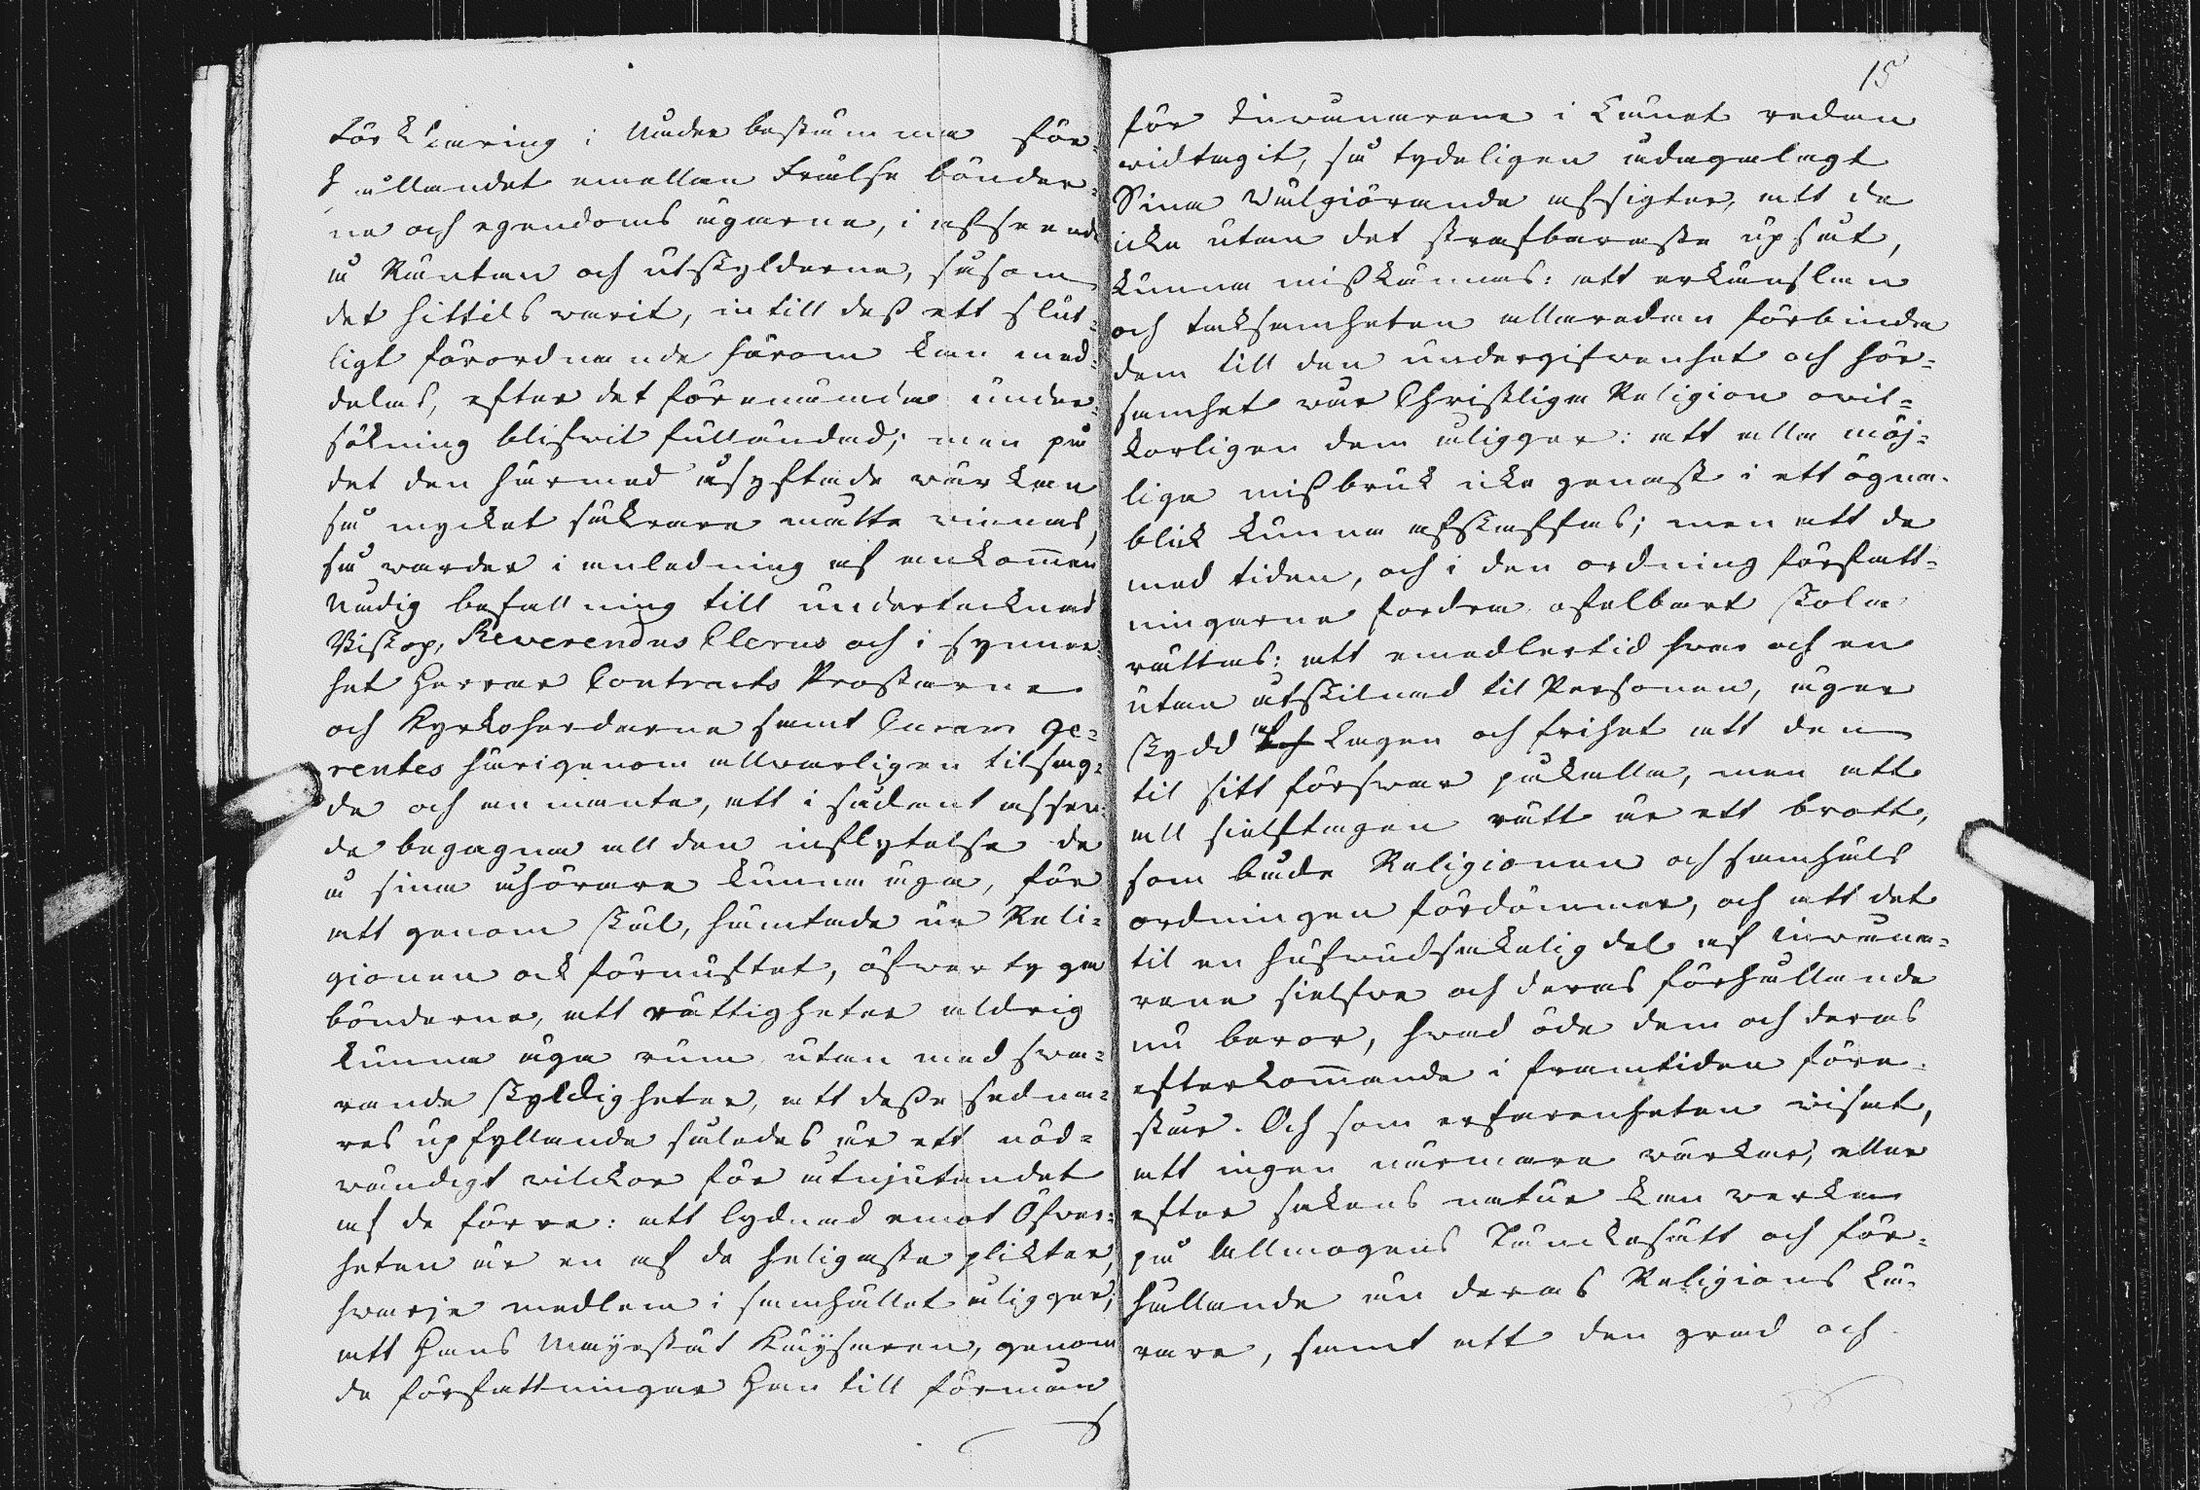 förklaring i Nåder bestämma för-
hållandet emellan Frälse bönder-
ne och egendoms ägarne, i afseende
å Räntan och utskylderna, såsom
det hittils warit, intill deß ett slut-
ligt förordnande härom kan med-
delas, efter det förenämde under-
sökning blifwit fulländad; men på
det den härmed åsyftade wärkan
så mycket säkrare måtte winnas,
så warder i anledning af ankommen
Nådig befallning till undertecknad
Biskop, Reverendus Clerus och i synner-
het Herrar Contracts Prostarne
och Kyrkoherdarne samt Curam ge-
rentes härigenom allvarligen tilsag-
de och anmante, att i sådant afseen-
de begagna all den inflytelse de
å sina åhörare kunna äga, för
att genom skäl, hämtade ur Reli-
gionen ock förnuftet, öfwertyga
bönderne, att rättigheter aldrig
kunna äga rum utan med swa-
rande skyldigheter, att deße sedna-
res upfyllande således är ett nöd-
wändigt wilckor för utnjutandet
af de förre: att lydnad emot Öfwer-
heten är en af de heligaste plikter,
hwarje medlem i samhället åligger;
att Hans Mayestät Kaysaren, genom
de författningar Han till förmån
15
för Inwånarene i Länet redan
widtagit, så tydeligen ådagalagt
Sina Wälgiörande afsigter, att de
icke utan det straffbaraste upsåt,
kunna mißkännas: att erkänslan
och taksamheten allaredan förbinda
dem till den undergifwenhet och hör-
samhet wår Christliga Religion owil-
korligen dem åligger: att alla möj-
liga mißbruk icke genast i ett ögna-
blick kunna afskaffas; men att de
med tiden, och i den ordning författ-
ningarne fordra ofelbart skola
rättas: att emedlertid hwar och en
utan åtskilnad til Personen, äger
skydd af Lagen och frihet att den
til sitt förswar påkalla, men att
all sielftagen rätt är ett brott,
som både Religionen och samhäls
ordningen fördömmer, och att det
til en hufwudsakelig del af Inwåna-
rene sielfwe och deras förhållande
nu beror, hwad öde dem och deras
efterkommande i framtiden före-
står. Och som erfarenheten wisat,
att ingen närmare wärkar, eller
efter sakens natur kan werka
på Allmogens Tänckesätt och för-
hållande än deras Religions Lä-
rare, samt att den grad och